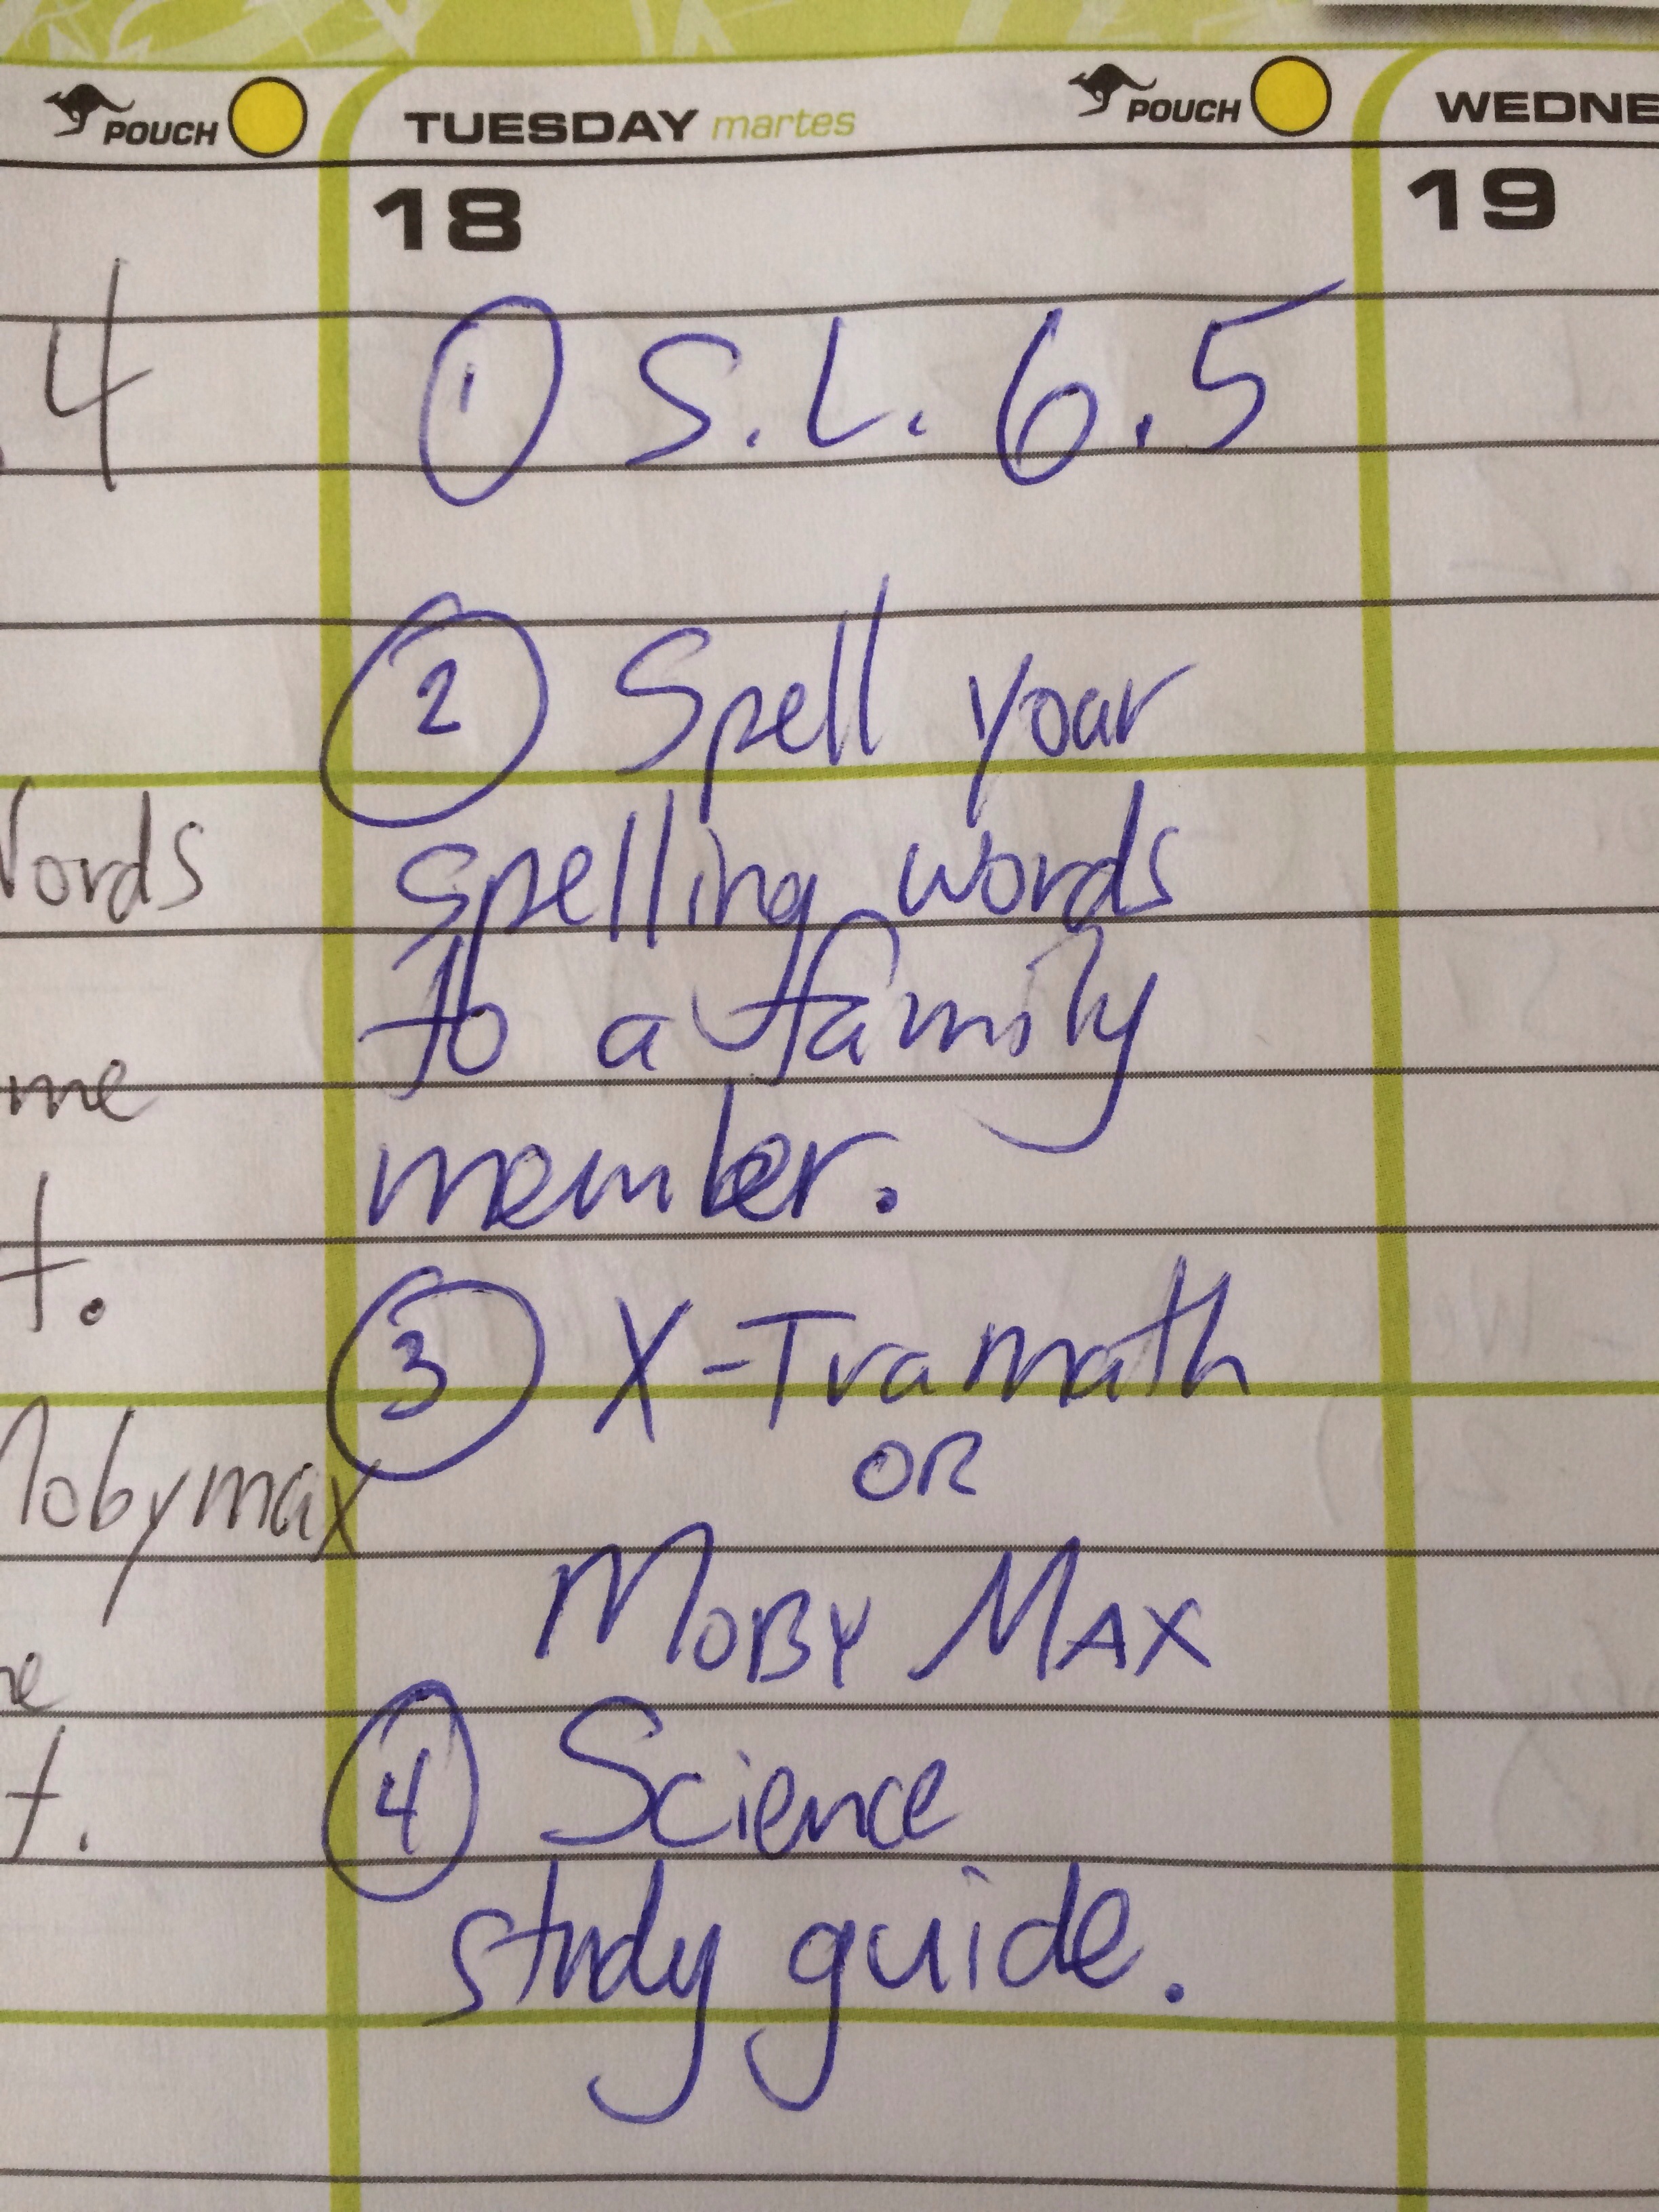 POUCH TUESDAY martes POUCH WEDNE
18 19
4
1 S.L. 6.5
2 Spell your
spelling words
to a family
member.
3 X-Tramath
OR
MOBY MAX
4 Science
study guide.
ords
me
t.
obymax
t.